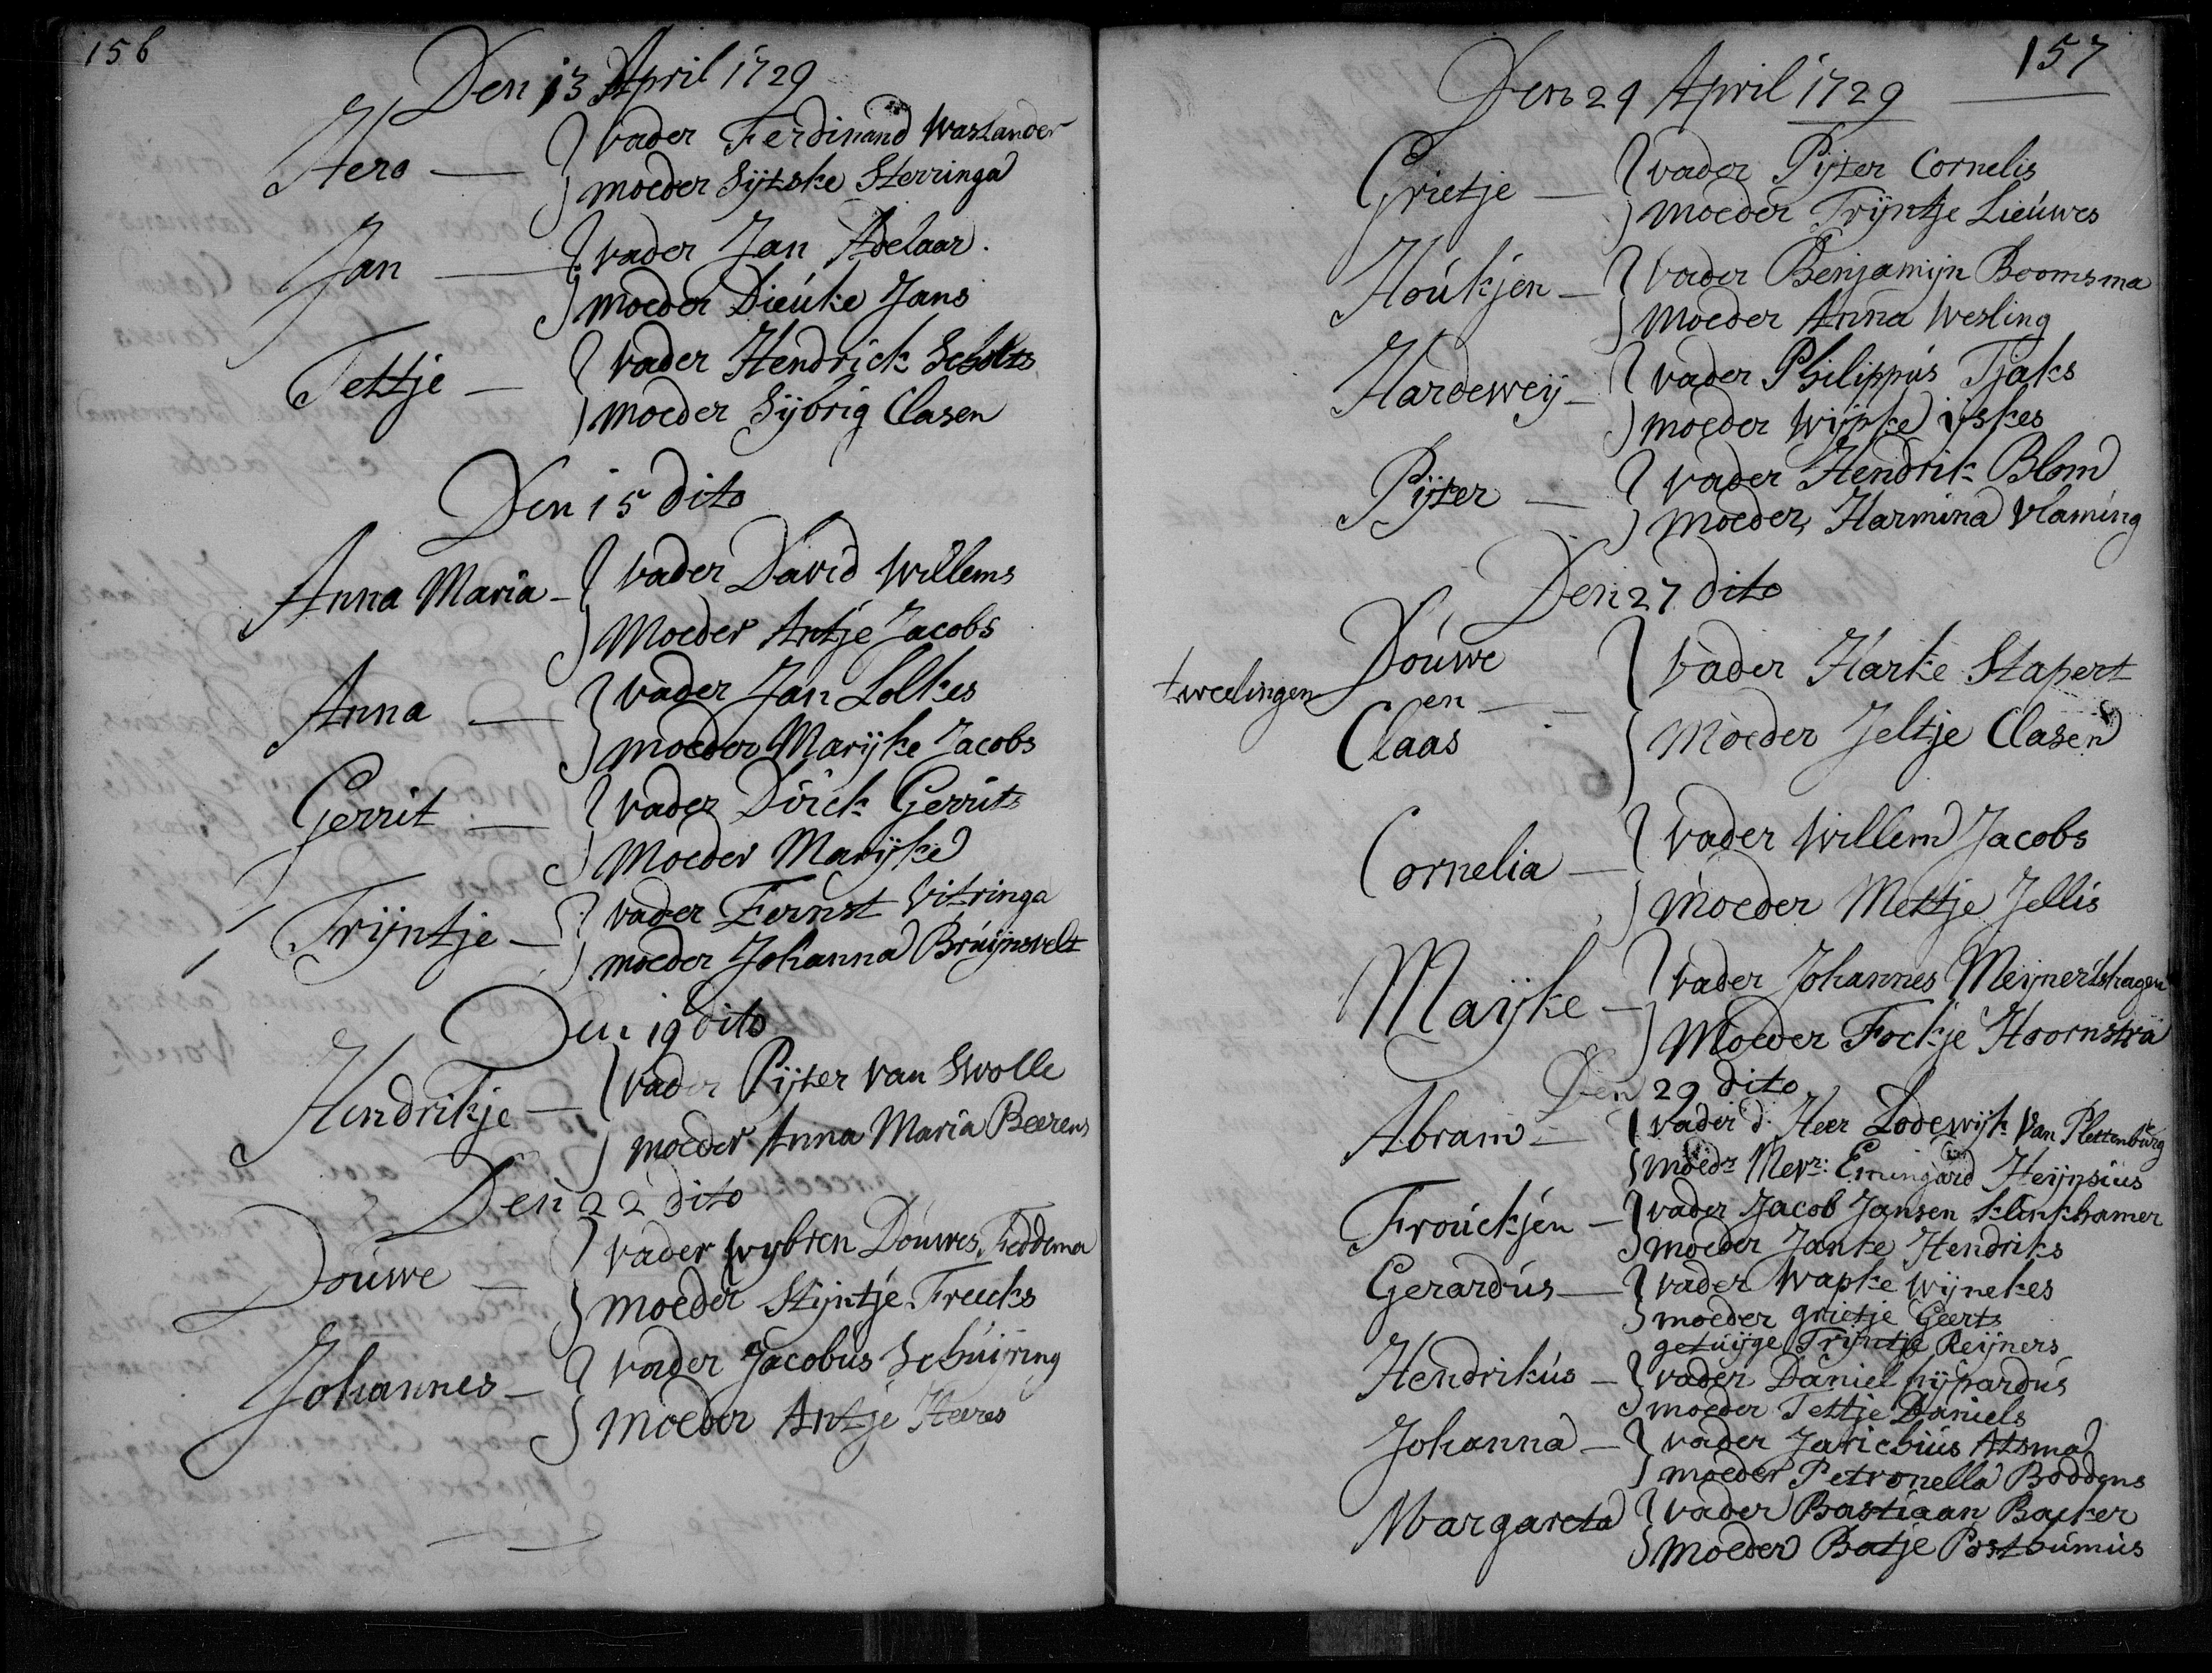 156
Den 13 April 1729
Hero — vader Ferdinand Waslander
moeder Sijtske Sterringa
Jan — vader Jan Adelaar.
moeder Dieuke Jans
Tettje — vader Hendrick Scholts
moeder Sijbrig Clasen
Den 15 dito
Anna Maria — vader David Willems
Moeder Antje Jacobs
Anna — vader Jan Lolkes
moeder Marijke Jacobs
Gerrit — vader Dirck Gerrits
Moeder Marijke
Trijntje — vader Eernst Vitringa
moeder Johanna Bruijnsvelt
Den 19 dito
Hendrikje — vader Pijter van Swolle
moeder Anna Maria Beerens
Den 22 dito
Douwe — vader Wybren Douwes Feddema
moeder Stijntje Freecks
Johannes — vader Jacobus Schuiring
moeder Antje Heeres
157
Den 24 April 1729
Grietje — vader Pijter Cornelis
moeder Trijntje Lieuwes
Houkjen — vader Benjamijn Boomsma
moeder Anna Wesling
Hardeweij — vader Philippus Tjaks
moeder Wijpke ijskes
Pijter — vader Hendrik Blom
moeder Harmina Vlaming
Den 27 dito
tweelingen Douwe en Claas — vader Harke Stapert
Moeder Jeltje Clasen
Cornelia — vader Willem Jacobs
Moeder Mettje Jellis
Maijke — vader Johannes Meijnertshagen
Moeder Fockje Hoornstra
Den 29 dito
Abram — vader d. Heer Lodewijk van Plettenburg
moedr Mevr: Ermingard Heijpsius
Frouckjen — vader Jacob Jansen Klinkhamer
moeder Janke Hendriks
Gerardus — vader Wapke Wijnekes
moeder grietje Geerts
getuijge Trijntje Reijners
Hendrikus — vader Daniel Sijpardus
moeder Tettje Daniels
Johanna — vader Jarichius Atsma
moeder Petronella Boddens
Margareta vader Bastiaan Backer
moeder Batje Posthumus